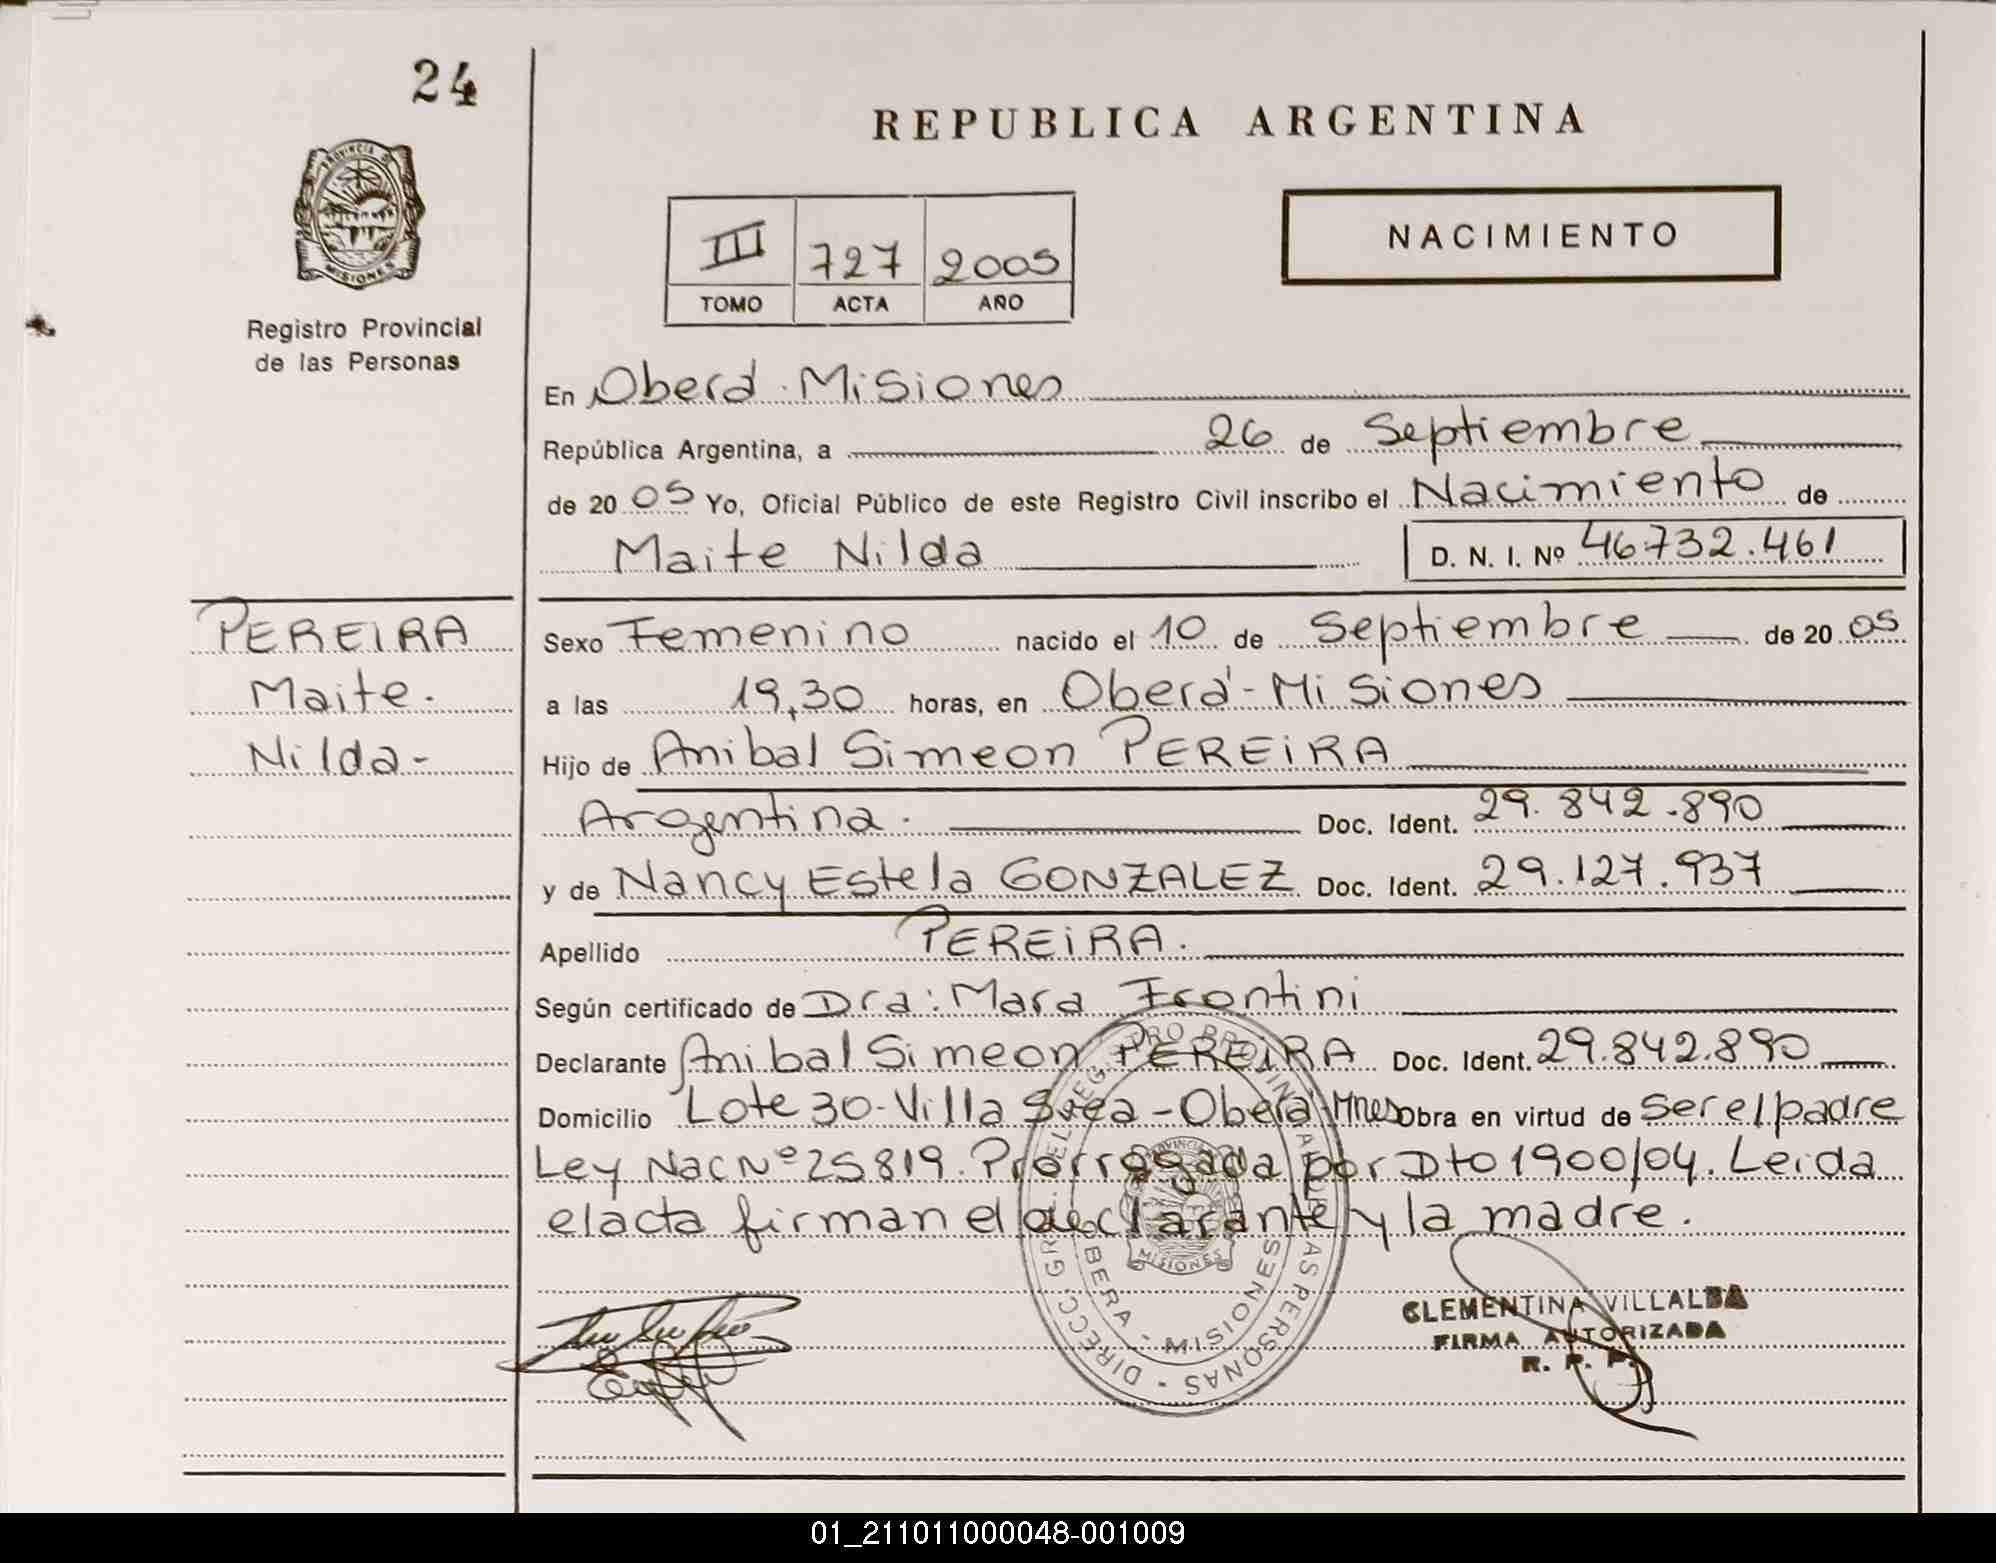 24
REPUBLICA ARGENTINA
PROVINCIA DE
MISIONES
Registro Provincial
de las Personas
III 727 2005
TOMO ACTA AÑO
NACIMIENTO
En Oberá. Misiones
República Argentina, a 26 de Septiembre
de 20 05 Yo, Oficial Público de este Registro Civil inscribo el Nacimiento de
Maite Nilda D. N. I. Nº 46732.461
PEREIRA
Maite.
Nilda-
Sexo Femenino nacido el 10 de Septiembre de 20 05
a las 19,30 horas, en Oberá-Misiones
Hijo de Anibal Simeon PEREIRA
Argentina. Doc. Ident. 29.842.890
y de Nancy Estela GONZALEZ Doc. Ident. 29.127.937
Apellido PEREIRA.
Según certificado de Dra: Mara Frontini
Declarante Anibal Simeon PEREIRA Doc. Ident. 29.842.890
Domicilio Lote 30-Villa Svea-Oberá Mnes Obra en virtud de ser el padre
Ley Nac Nº 25819. Prorrogada por Dto 1900/04. Leida
el acta firman el declarante y la madre.
DIRECC. GRAL. DEL REGISTRO PROVINCIAL DE LAS PERSONAS
OBERA - MISIONES
PROVINCIA
MISIONES
CLEMENTINA VILLALBA
FIRMA AUTORIZADA
R. P. P.
01_211011000048-001009